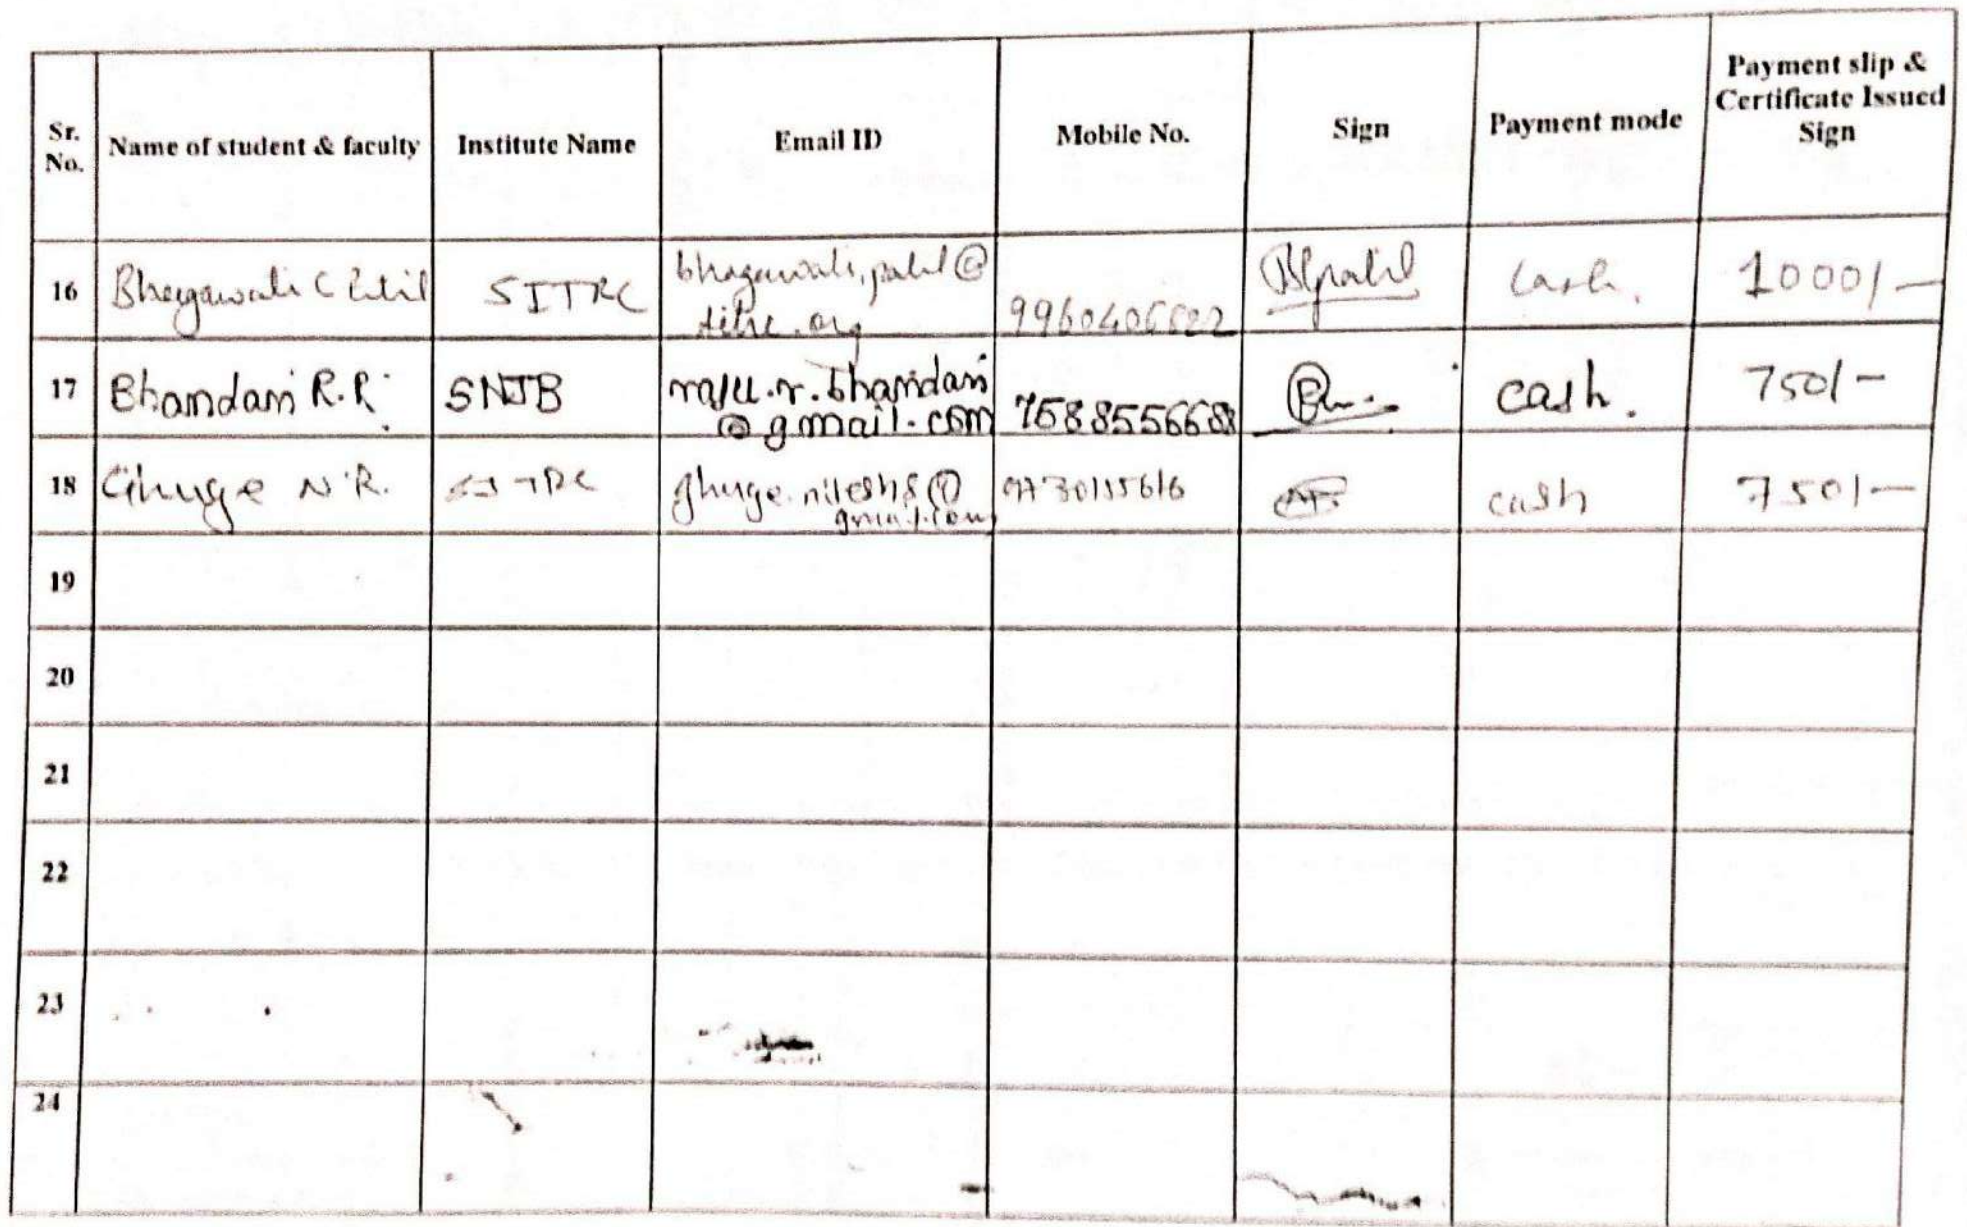 Sr. No. Name of student & faculty Institute Name Email ID Mobile No. Sign Payment mode Payment slip & Certificate Issued Sign
16 Bhagawati C Patil SITRC bhagawati.patil@ 9960406522 BCpatil cash. 1000/-
sitrc.org
17 Bhandari R.R. SNJB raju.r.bhandari 7588556688 cash. 750/-
@gmail.com
18 Ghuge N.R. SITRC ghuge.nilesh8@ 9730155616 cash 750/-
gmail.com
19
20
21
22
23
24